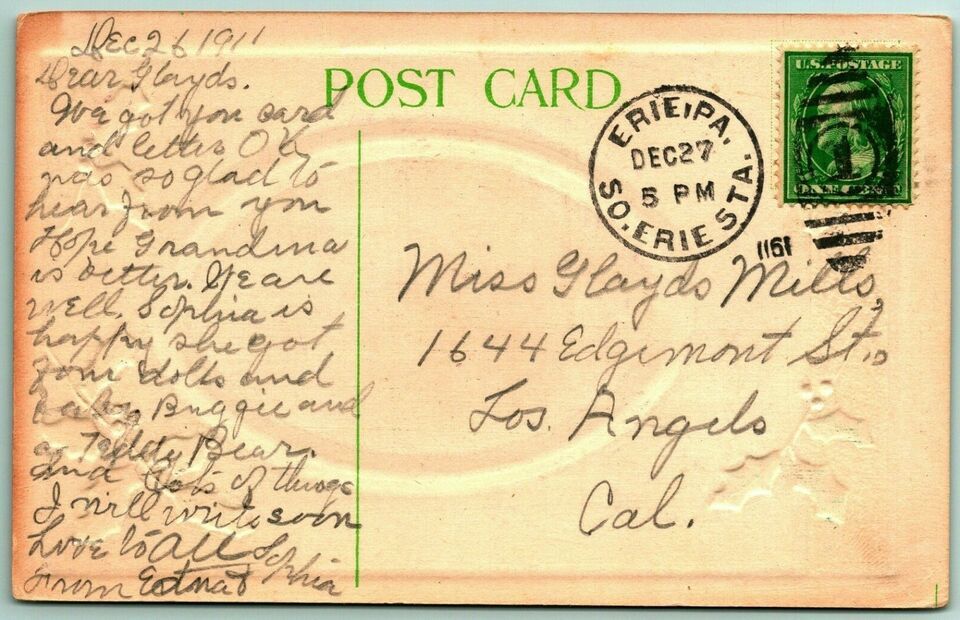 Dec 26 1911
Dear Glayds.
We got you card
and letter O K
was so glad to
hear from you
Hope Grandma
is better. We are
well. Sophia is
happy she got
four dolls and
baby Buggie and
a Teddy Bear.
and lots of things
I will write soon
Love to All Sophia
From Edna &
POST CARD
U.S. POSTAGE
ERIE, PA.
DEC 27
5 PM
SO. ERIE STA.
1911
1
Miss Glayds Mills,
1644 Edgemont St.,
Los. Angels
Cal.